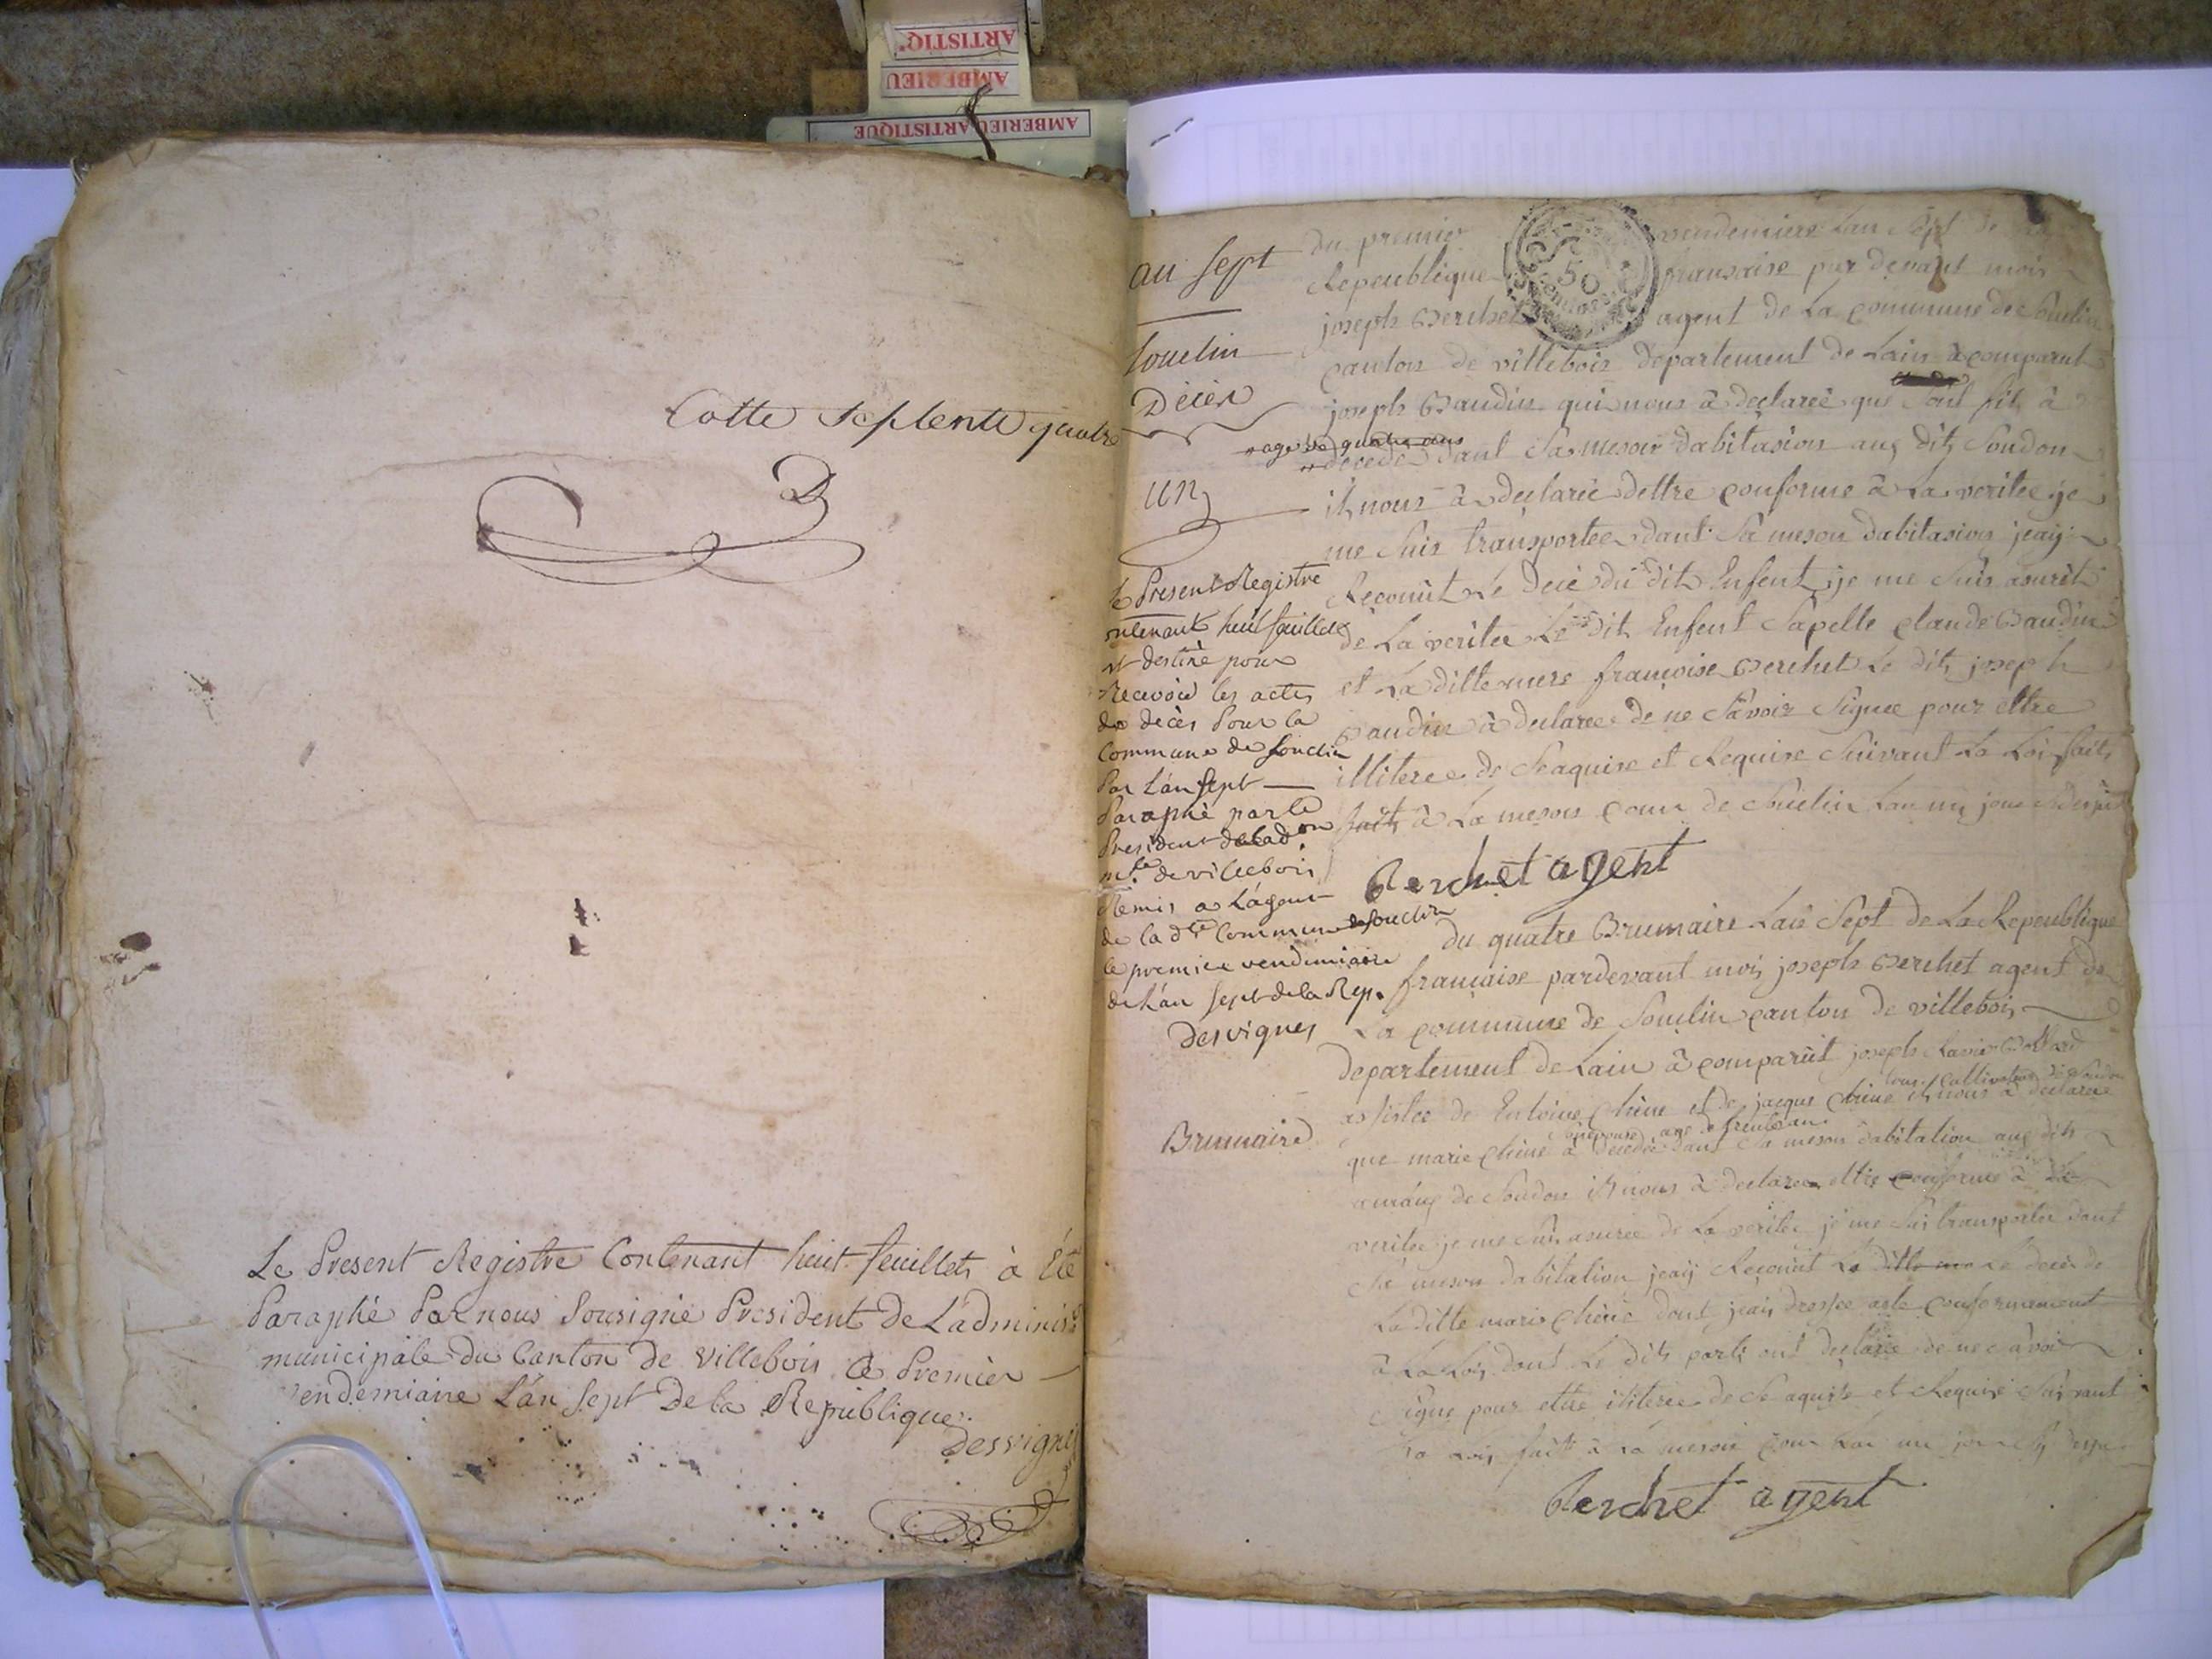 ARTISTIQ'
AMBERIEU
AMBERIEU ARTISTIQUE
Cotte septente quatre
Le Present Registre Contenant huit feuillets à Été
Paraphé Par nous Sousigné President de L'adminis
municipale du Canton de Villebois le Premier
vendemiaire L'an Sept De la Republique.
Desvignes
an sept
Souclin
Décès
un
le Present Registre
contenant huit feuillets
est destiné pour
Recevoir les actes
de décès Pour la
Commune de Souclin
Par L'an sept
Paraphé par le
President de lad on
mle de villebois
Remis a L'agent
de la dte Commune de Souclin
le premier vendemiaire
de L'an sept de la Rep.
Desvignes
Brumaire
du premier vendemiere Lan Sept de
Republique 50 fransaise par devant mois
joseph Berchet agent de La commune de Souclin
canton de villebois departement de Lain à comparut
joseph Baudin qui nous à declareé que son fils à
age de quatre ans
decedé dant sa meson dabitasion au dit Soudon
il nous à declareé dettre conforme à La veritee je
me suis transportee dant sa meson dabitasion jeay
Reconut Le decè du dit Enfent je me suis asurèt
de La veritee Le dit Enfent Sapelle claude Baudin
et La ditte mere françoise Berchet Le dit joseph
Baudin à declaree de ne Savoir Signee pour ettre
illiteree de Seaquise et Requise Suivant La Loi fait
fait à La meson comu de Souclin Lan mj jour
Berchet agent
du quatre Brumaire Lan Sept de La Republique
française pardevant moi joseph Berchet agent de
La commune de Souclin canton de villebois
departement de Lain à comparut joseph
assistee de Entoine chene et de jacque chene il nous à declaree
tous cultivateur de Soudon
que marie chene à decedee dant Sa meson dabitation au dit
son epouse age de trente an
de Soudon il nous à declaree ettre conforme à La
veritee je me suis asuree de La veritee je me suis transportee dant
Sa meson dabitation jeay Reconut La ditte Le decè de
La ditte marie chene dont jeai dressee acte conformement
à La Loi dont Le dit parti ont declaree de ne savoir
Signe pour ettre iliteree de Se aquise et Requise Suivant
La Loi fait à La meson comu Lan mj jour
Berchet agent